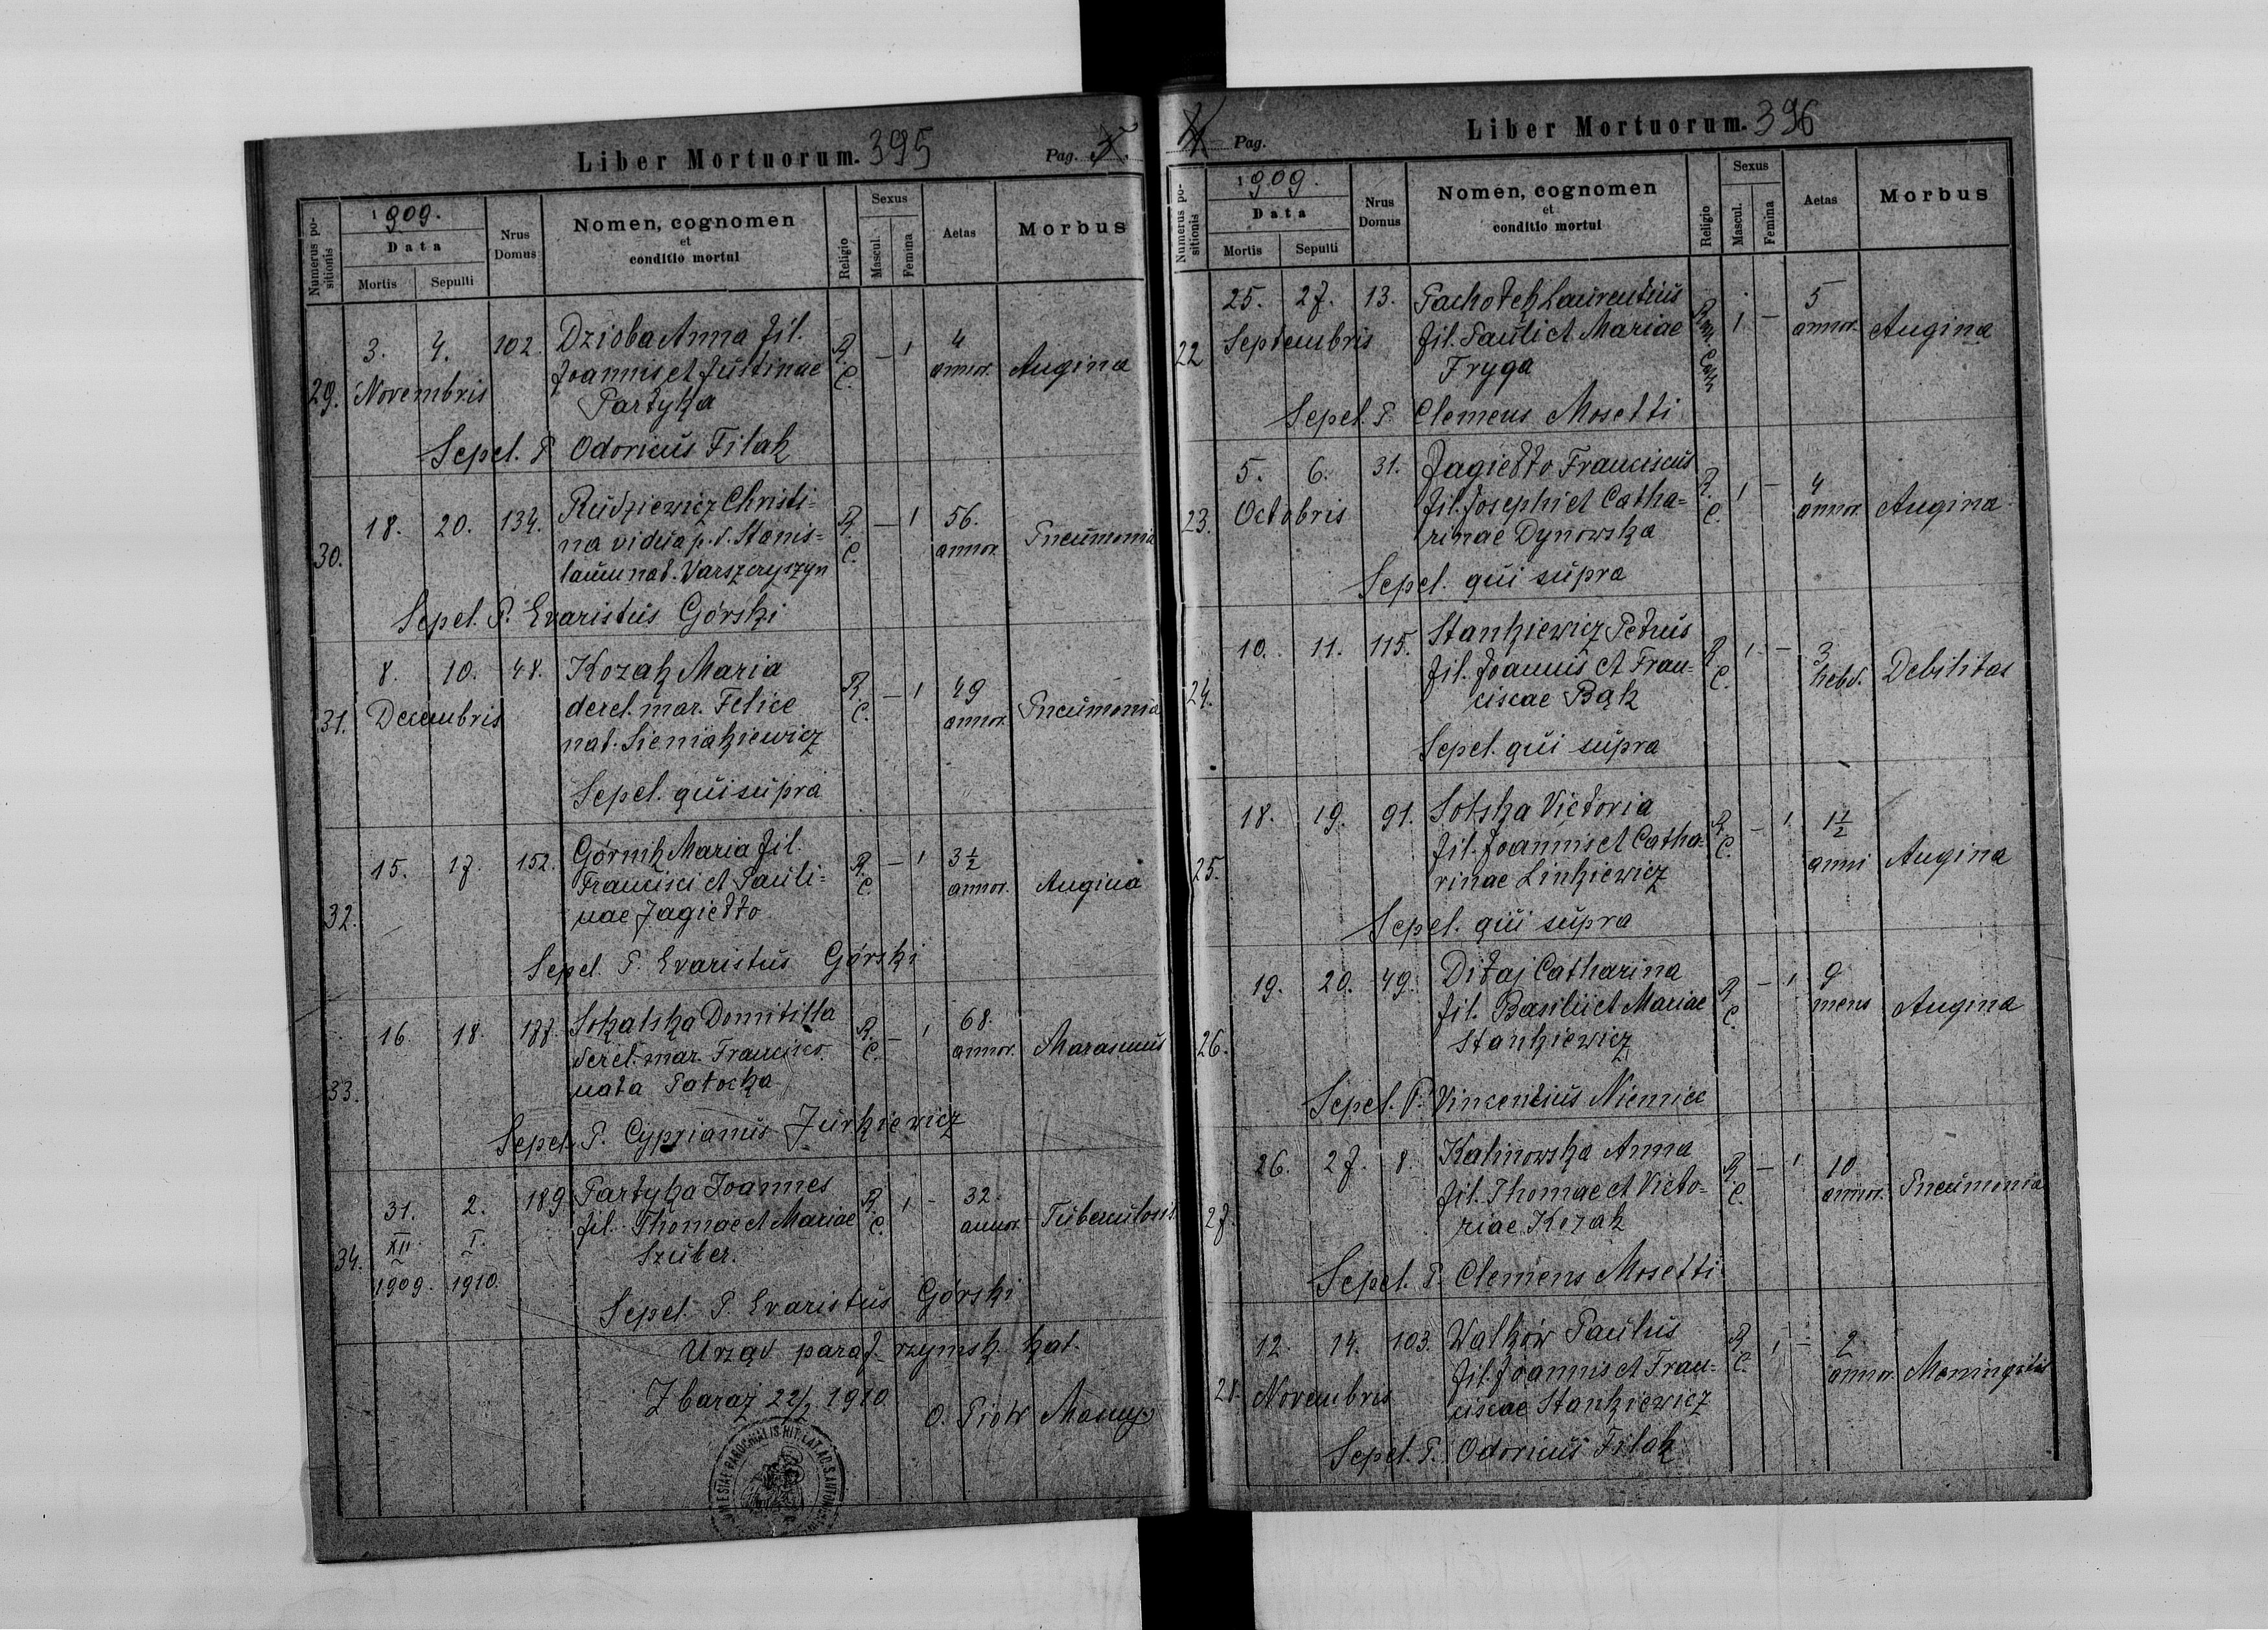 Liber Mortuorum. 395
Pag. 5.
Numerus positionis
1909.
Data
Mortis
Sepulti
Nrus Domus
Nomen, cognomen
et
conditio mortui
Religio
Sexus
Mascul.
Femina
Aetas
Morbus
29. 3. 4. 102. Dzioba Anna fil. R. C. — 1 4 annor. Angina
Novembris Joannis et Justinae
Partyka
Sepel. P. Odoricus Filak
30. 18. 20. 134. Rudziewicz Christi- R. C. — 1 56. annor. Pneumonia
na vidua p. d. Stanis-
laum nat. Varszeryszyn
Sepel. P. Evaristus Górski
31. 8. 10. 48. Kozak Maria R. C. — 1 49 annor. Pneumonia
Decembris derel. mar. Felice
nat. Sieniakiewicz
Sepel. qui supra
32. 15. 17. 152. Górnik Maria fil. R. C. — 1 3 1/2 annor. Angina
Francisci et Pauli-
nae Jagiełło
Sepel. P. Evaristus Górski
33. 16. 18. 177. Sokalska Domitilla R. C. — 1 68. annor. Marasmus
derel. mar. Francisco
nata Patocka
Sepel. P. Cyprianus Jurkiewicz
34. 31. 2. 189 Partyka Joannes R. C. 1 - 32. annor. Tuberculosis
XII. I. fil. Thomae et Mariae
1909. 1910. Szuber.
Sepel. P. Evaristus Górski
Urząd paraf. rzymsk. kat.
Zbaraż 22/ 1910
O. Piotr
PAROCHIALIS RIT. LAT. AD S. ANTON
Pag.
Liber Mortuorum. 396
Numerus positionis
1909.
Data
Mortis
Sepulti
Nrus Domus
Nomen, cognomen
et
conditio mortui
Religio
Sexus
Mascul.
Femina
Aetas
Morbus
22 25. 27. 13. Pachołek Laurentius Rom. Cath. 1 — 5 annor. Angina
Septembris fil. Pauli et Mariae
Fryga
Sepel. P. Clemens Mosetti
23. 5. 6. 31. Jagiełło Franciscus R. C. 1 — 4 annor. Angina
Octobris fil. Josephi et Catha-
rinae Dynowska
Sepel. qui supra
24. 10. 11. 115. Stankiewicz Petrus R. C. 1 — 3 hebd. Debilitas
fil. Joannis et Fran-
ciscae Bąk
Sepel. qui supra
25. 18. 19. 91. Solska Victoria R. C. — 1 1 1/2 anni Angina
fil. Joannis et Catha-
rinae Linkiewicz
Sepel. qui supra
26. 19. 20. 49. Ditaj Catharina R. C. — 1 9 mens Angina
fil. Basilii et Mariae
Stankiewicz
Sepel. P. Vincentius Niemiec
27. 26. 27. 8. Kalinowska Anna R. C. — 1 10 annor. Pneumonia
fil. Thomae et Victo-
riae Kozak
Sepel. P. Clemens Mosetti
28. 12. 14. 103. Walków Paulus R. C. 1 — 2 annor. Meningitis
Novembris fil. Joannis et Fran-
ciscae Stankiewicz
Sepel. P. Odoricus Filak